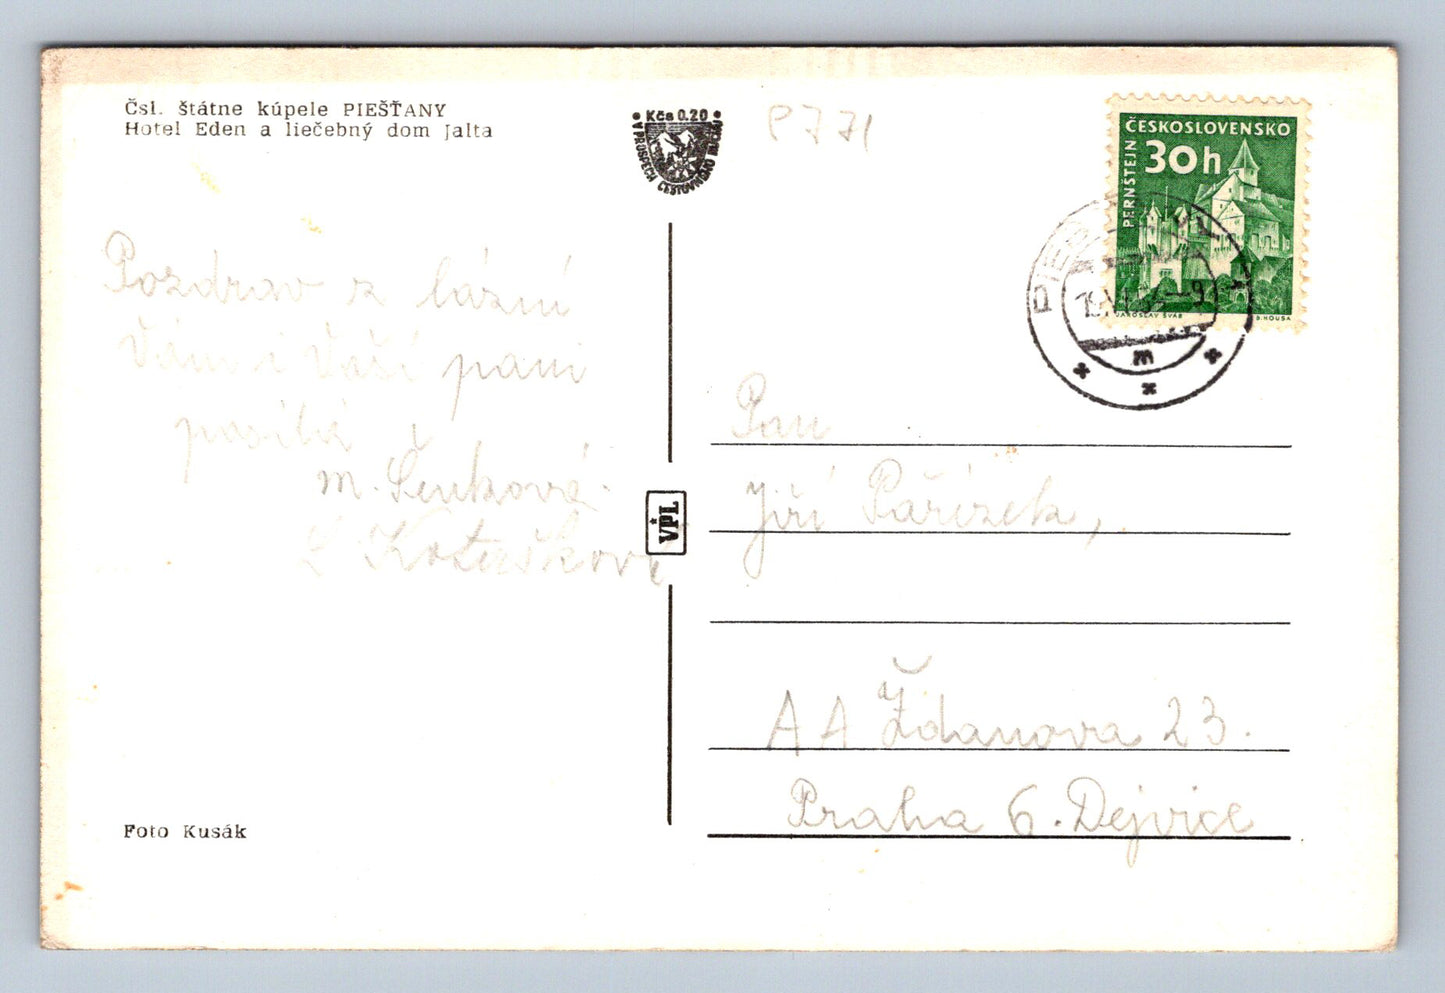 Čsl. štátne kúpele PIEŠŤANY
Hotel Eden a liečebný dom Jalta
Kčs 0,20
V PROSPECH CESTOVNÉHO RUCHU
P771
ČESKOSLOVENSKO
30h
PERNŠTEJN
JAROSLAV ŠVÁB
B. HOUSA
Pozdrav z lázní
Vám i Vaší paní
posílá
M. Šenková
Pan
Jiří Pařízek,
VPL
AA Ždanova 23.
Praha 6. Dejvice
Foto Kusák